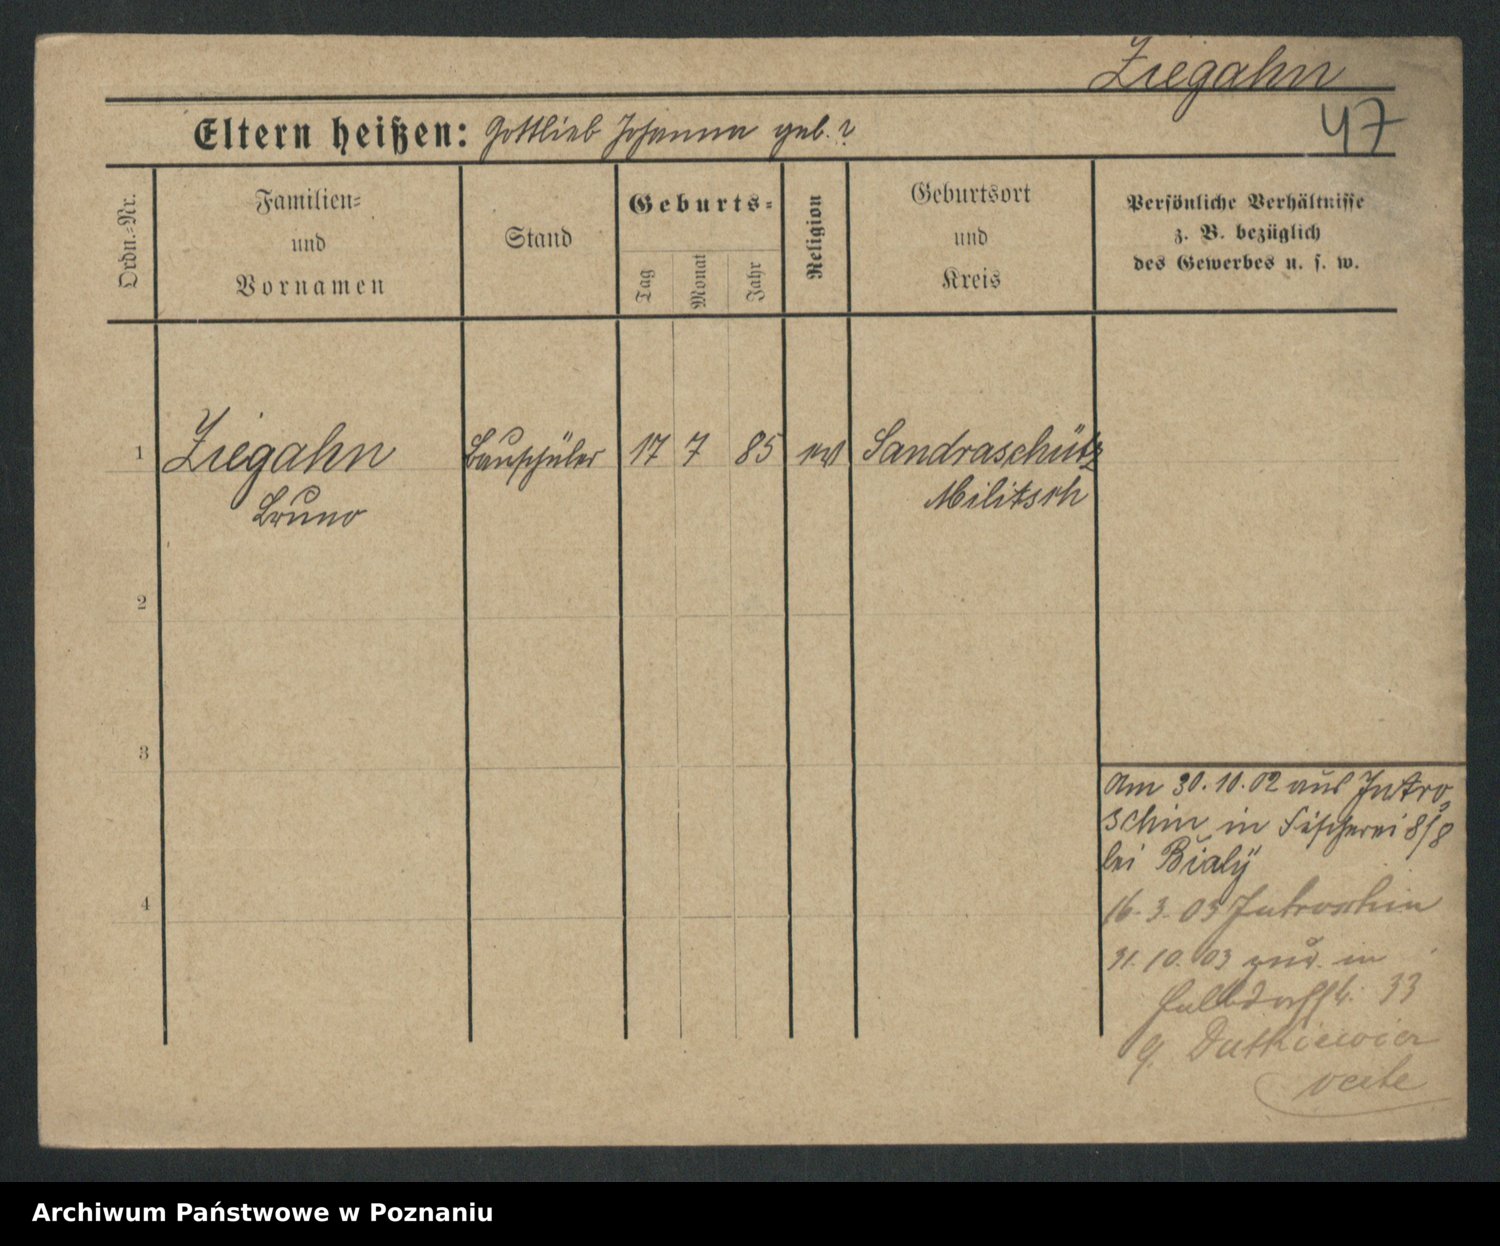 Ziegahn
47
Eltern heißen: Gottlieb Johanna geb. ?
Ordn.-Nr.
Familien-
und
Vornamen
Stand
Geburts-
Tag
Monat
Jahr
Religion
Geburtsort
und
Kreis
Persönliche Verhältnisse
z. B. bezüglich
des Gewerbes u. s. w.
1 Ziegahn Bauschüler 17 7 85 ev Sandraschütz
Bruno Militsch
2
3
4
Am 30.10.02 aus Jutro-
schin in Fischerei 8/8
bei Bialÿ
16.3.03 Jutroschin
31.10.03 zur. in
33
Dutkiewicz